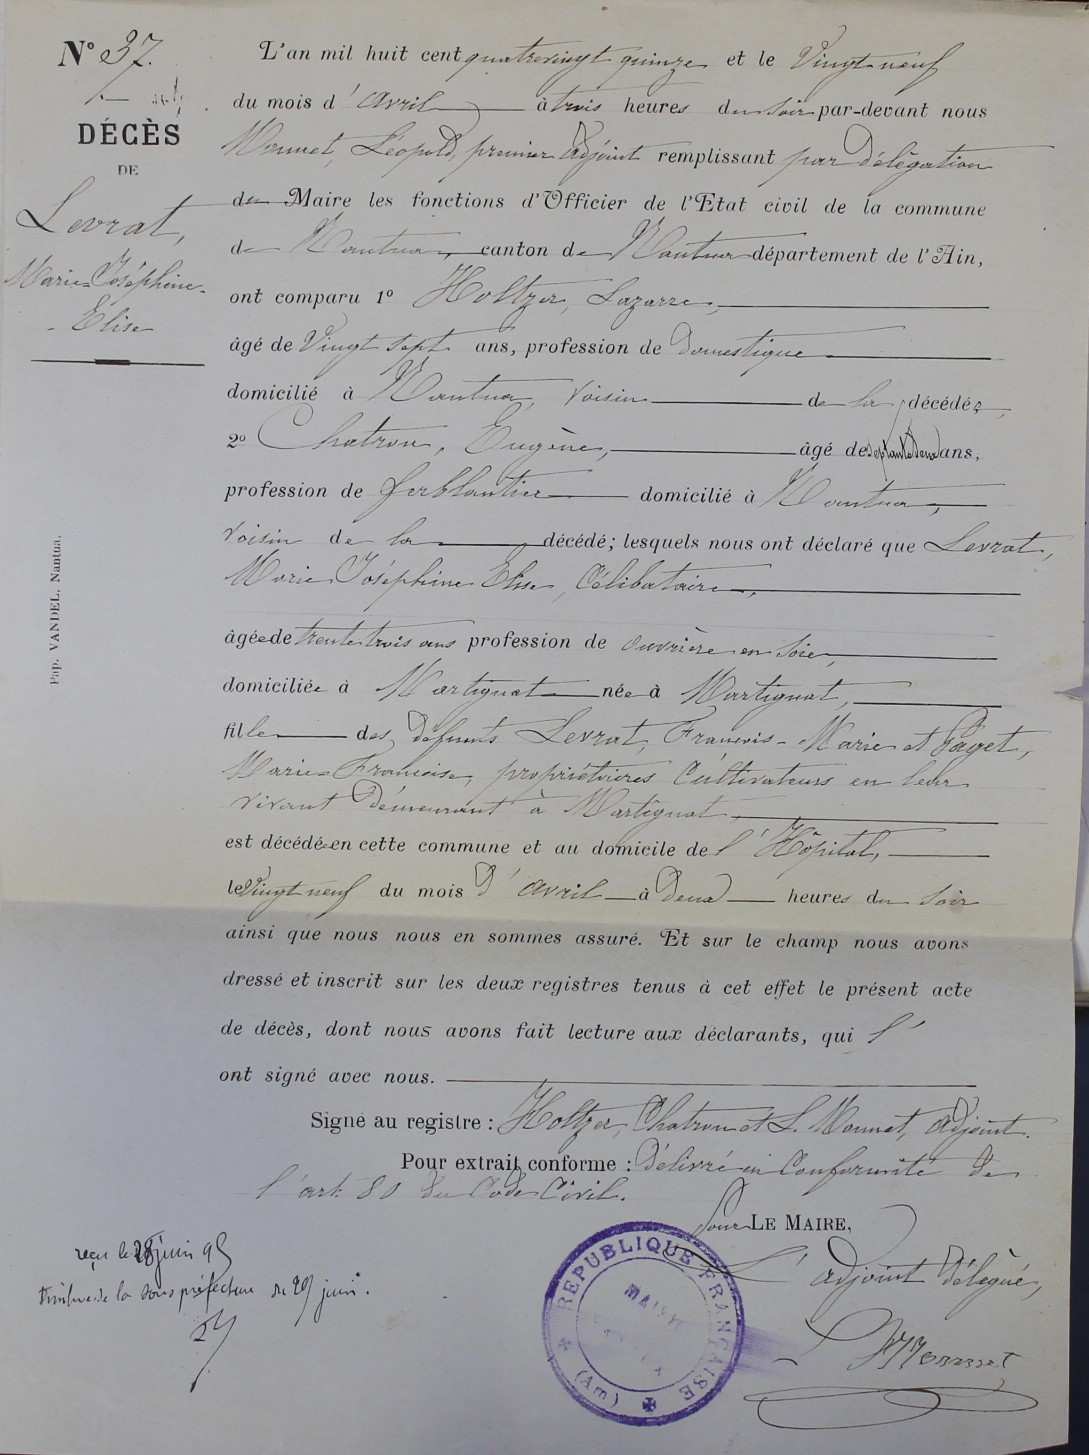 N° 37.
DÉCÈS
DE
Levrat,
Marie Joséphine
Élise
Pap. VANDEL, Nantua.
L'an mil huit cent quatrevingt quinze et le Vingt neuf
du mois d'Avril à trois heures du soir par-devant nous
Monnet, Léopold, premier adjoint remplissant par Délégation
du Maire les fonctions d'Officier de l'Etat civil de la commune
de Nantua, canton de Nantua département de l'Ain,
ont comparu 1° Holtzer, Lazarre,
âgé de Vingt sept ans, profession de Domestique
domicilié à Nantua, voisin de la décédée,
2° Chatron, Eugène, âgé de septante deux ans,
profession de ferblantier domicilié à Nantua,
voisin de la décédé; lesquels nous ont déclaré que Levrat,
Marie Joséphine Elise, Célibataire,
âgée de trente trois ans profession de ouvrière en soie,
domiciliée à Martignat née à Martignat,
fille des défunts Levrat, François-Marie et Paget,
Marie-Françoise, propriétaires Cultivateurs en leur
vivant demeurant à Martignat
est décédée en cette commune et au domicile de l'Hôpital,
le Vingt neuf du mois d'avril à deux heures du soir
ainsi que nous nous en sommes assuré. Et sur le champ nous avons
dressé et inscrit sur les deux registres tenus à cet effet le présent acte
de décès, dont nous avons fait lecture aux déclarants, qui l'
ont signé avec nous.
Signé au registre : Holtzer, Chatron et L. Monnet, adjoint.
Pour extrait conforme : Délivré en Conformité de
l'art. 80 du Code Civil.
Pour LE MAIRE,
L'adjoint délégué,
LMonnet
reçu le 28 juin 95
timbre de la sous préfecture du 29 juin.
RÉPUBLIQUE FRANÇAISE
MAIRIE
(Ain)